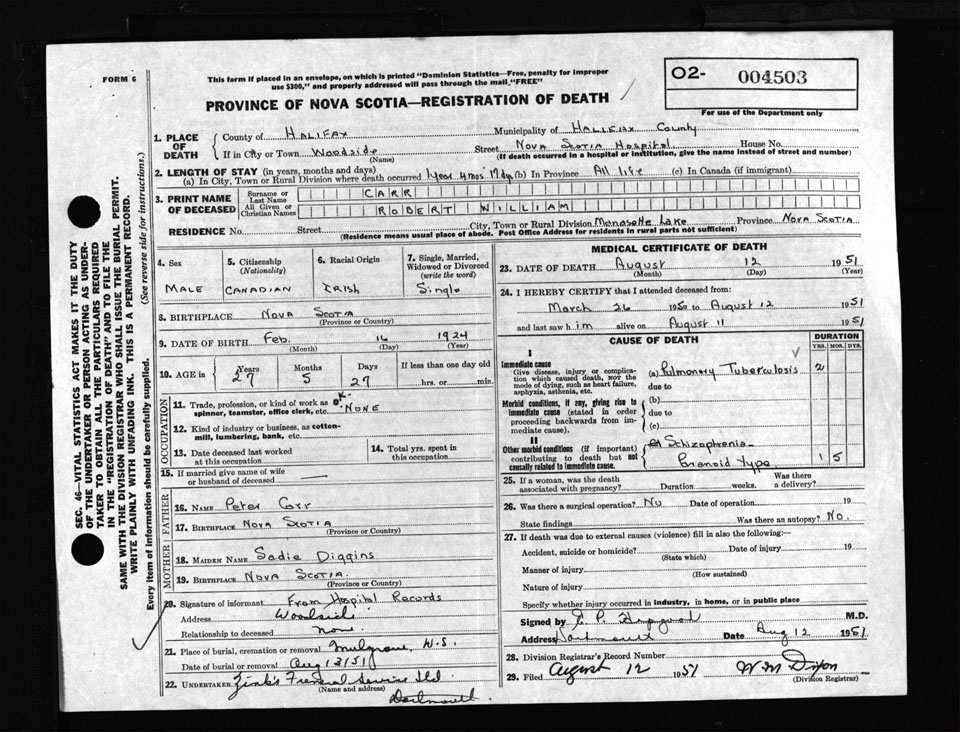 FORM 6
This form if placed in an envelope, on which is printed "Dominion Statistics—Free, penalty for improper
use $300," and properly addressed will pass through the mail "FREE"
O2- 004503
For use of the Department only
PROVINCE OF NOVA SCOTIA—REGISTRATION OF DEATH
SEC. 46—VITAL STATISTICS ACT MAKES IT THE DUTY
OF THE UNDERTAKER OR PERSON ACTING AS UNDER-
TAKER TO OBTAIN ALL THE PARTICULARS REQUIRED
IN THE "REGISTRATION OF DEATH" AND TO FILE THE
SAME WITH THE DIVISION REGISTRAR WHO SHALL ISSUE THE BURIAL PERMIT.
WRITE PLAINLY WITH UNFADING INK. THIS IS A PERMANENT RECORD.
Every item of information should be carefully supplied. (See reverse side for instructions.)
1. PLACE OF DEATH County of HALIFAX Municipality of HALIFAX County
If in City or Town Woodside (Name) Street NOVA SCOTIA HOSPITAL House No.
(If death occurred in a hospital or institution, give the name instead of street and number)
2. LENGTH OF STAY (in years, months and days)
(a) In City, Town or Rural Division where death occurred 1 year 4 mos 17 dys (b) In Province All life (c) In Canada (if immigrant)
3. PRINT NAME OF DECEASED Surname or Last Name CARR
All Given or Christian Names ROBERT WILLIAM
RESIDENCE No. Street City, Town or Rural Division Lake Province NOVA SCOTIA
(Residence means usual place of abode. Post Office Address for residents in rural parts not sufficient)
4. Sex MALE
5. Citizenship (Nationality) CANADIAN
6. Racial Origin IRISH
7. Single, Married, Widowed or Divorced (write the word) Single
8. BIRTHPLACE NOVA SCOTIA
(Province or Country)
9. DATE OF BIRTH Feb. 16 1924
(Month) (Day) (Year)
10. AGE in Years 27 Months 5 Days 27 If less than one day old hrs. or min.
OCCUPATION
11. Trade, profession, or kind of work as
spinner, teamster, office clerk, etc. NONE
12. Kind of industry or business, as cotton-
mill, lumbering, bank, etc.
13. Date deceased last worked at this occupation
14. Total yrs. spent in this occupation
15. If married give name of wife
or husband of deceased
FATHER
16. NAME Peter Carr
17. BIRTHPLACE NOVA SCOTIA
(Province or Country)
MOTHER
18. MAIDEN NAME Sadie Diggins
19. BIRTHPLACE NOVA SCOTIA.
(Province or Country)
20. Signature of informant From Hospital Records
Address Woodside
Relationship to deceased None.
21. Place of burial, cremation or removal Mulgrave N.S.
Date of burial or removal Aug 13/51
22. UNDERTAKER Zink's Funeral Service Ltd
(Name and address)
Dartmouth
MEDICAL CERTIFICATE OF DEATH
23. DATE OF DEATH August 12 1951
(Month) (Day) (Year)
24. I HEREBY CERTIFY that I attended deceased from:
March 26 1950 to August 12 1951
and last saw him alive on August 11 1951
CAUSE OF DEATH
DURATION
YRS. MOS. DYS.
I
Immediate cause
Give disease, injury or complica-
tion which caused death, not the
mode of dying, such as heart failure,
asphyxia, asthenia, etc.
(a) Pulmonary Tuberculosis 2
due to
Morbid conditions, if any, giving rise to
immediate cause (stated in order
proceeding backwards from im-
mediate cause).
(b)
due to
(c)
II
Other morbid conditions (if important)
contributing to death but not
causally related to immediate cause.
Schizophrenia
Paranoid Type 1 5
25. If a woman, was the death
associated with pregnancy? Duration weeks. Was there a delivery?
26. Was there a surgical operation? No Date of operation 19
State findings Was there an autopsy? No.
27. If death was due to external causes (violence) fill in also the following:
Accident, suicide or homicide? Date of injury 19
(State which)
Manner of injury
(How sustained)
Nature of injury
Specify whether injury occurred in industry, in home, or in public place
Signed by E. P. M.D.
Address Dartmouth Date Aug 12 1951
28. Division Registrar's Record Number
29. Filed August 12 1951 W M Dixon
(Division Registrar)